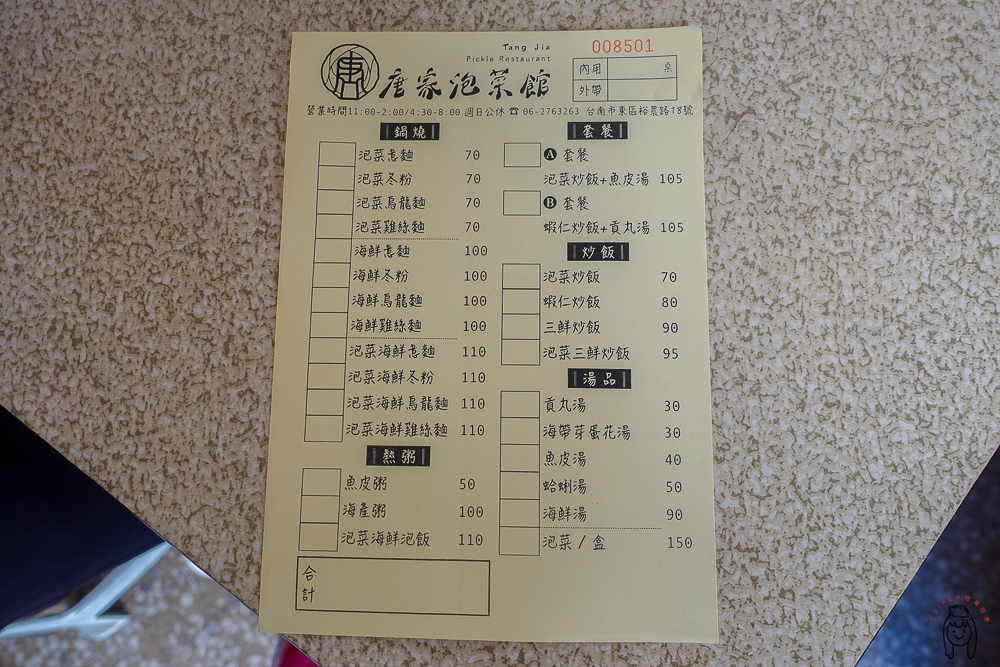 唐
Tang Jia
Pickle Restaurant
唐家泡菜館
008501
內用 桌
外帶
營業時間11:00-2:00/4:30-8:00 週日公休 ☎ 06-2763263 台南市東區裕農路18號
鍋燒
泡菜意麵 70
泡菜冬粉 70
泡菜烏龍麵 70
泡菜雞絲麵 70
海鮮意麵 100
海鮮冬粉 100
海鮮烏龍麵 100
海鮮雞絲麵 100
泡菜海鮮意麵 110
泡菜海鮮冬粉 110
泡菜海鮮烏龍麵 110
泡菜海鮮雞絲麵 110
熱粥
魚皮粥 50
海產粥 100
泡菜海鮮泡飯 110
合計
套餐
A 套餐
泡菜炒飯+魚皮湯 105
B 套餐
蝦仁炒飯+貢丸湯 105
炒飯
泡菜炒飯 70
蝦仁炒飯 80
三鮮炒飯 90
泡菜三鮮炒飯 95
湯品
貢丸湯 30
海帶芽蛋花湯 30
魚皮湯 40
蛤蜊湯 50
海鮮湯 90
泡菜/盒 150